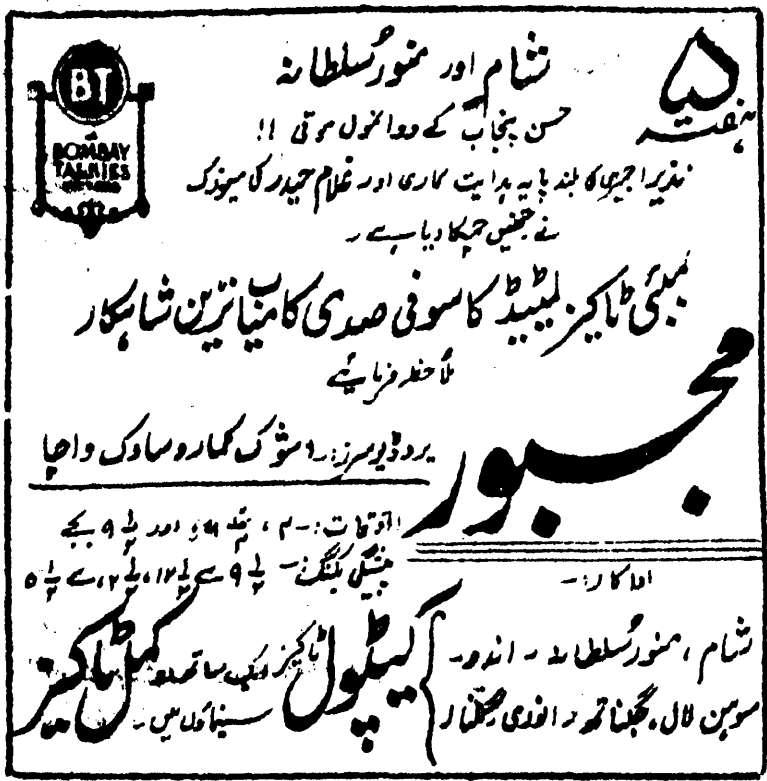 ۵
ہفتہ
BT
BOMBAY
TALKIES
شام اور منور سلطانہ
حسن پنجاب کے دو انمول موتی !!
نذیر اجمیری کا بلند پایہ ہدایت کاری اور غلام حیدر کا میوزک
نے جنھیں چمکا دیا ہے ۔
بمبئی ٹاکیز لمیٹیڈ کا سو فی صدی کامیاب ترین شاہکار
ملاحظہ فرمائیے
مجبور
پروڈیوسرز:۔ اشوک کمار و ساوک واچا
اوقات:۔ ۳، اور ۹ ½ بجے
پیشگی بکنگ:۔ ۹ ½ سے ۱۲ ½، ۲ ½، سے ۵ ½
اداکار:۔
شام، منور سلطانہ ۔ اندو۔
سوہن لال، جگناتھ، انوری،
کیپٹول ٹاکیز ایک ساتھ دو کمل ٹاکیز
سینماؤں میں۔